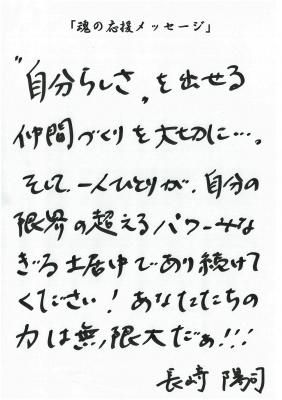 「魂の応援メッセージ」
"自分らしさ"を出せる
仲間づくりを大切に…。
そして、一人ひとりが、自分の
限界の超えるパワーみな
ぎる土居中であり続けて
ください！あなたたちの
力は無限大だぁ!!!
長崎 陽司